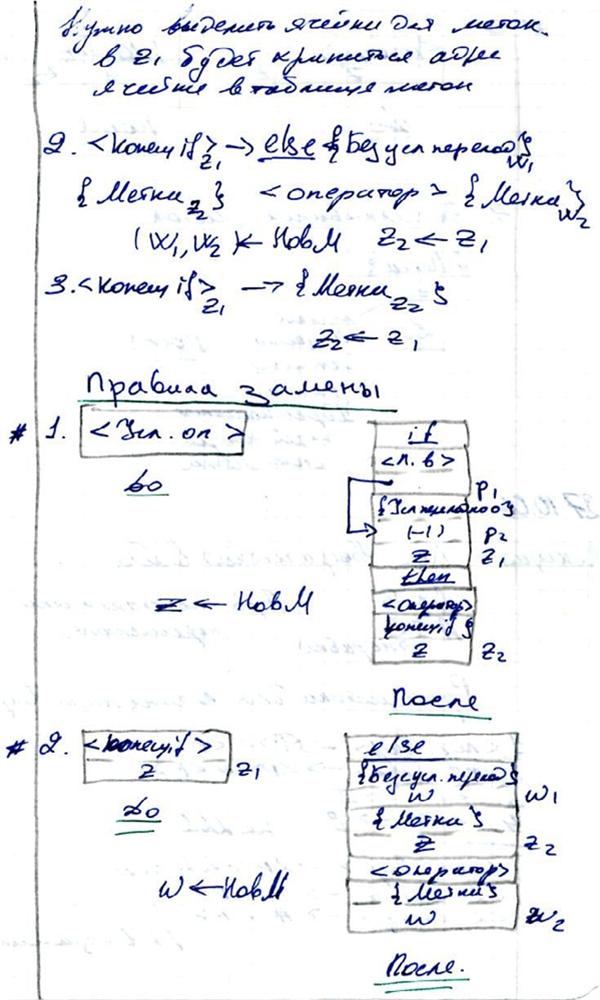 Нужно выделить ячейки для меток.
в Z₁ будет храниться адрес
ячейки в таблице меток
2. <конец if>_Z₁ → else {Безусл переход}_W₁
{Метка_Z₂} <оператор> {Метка}_W₂
(W₁, W₂) ← НовМ Z₂ ← Z₁
3. <конец if>_Z₁ → {Метка_Z₂}
Z₂ ← Z₁
Правила замены
# 1. <Усл. оп>
До
Z ← НовМ
if
<Л. в>
P₁
(-1) P₂
Z Z₁
then
<оператор>
конец if}
Z Z₂
После
# 2. <конец if>
Z Z₁
До
W ← НовМ
else
{Безусл. переход}
W W₁
{Метка}
Z Z₂
<оператор>
{Метка}
W W₂
После.